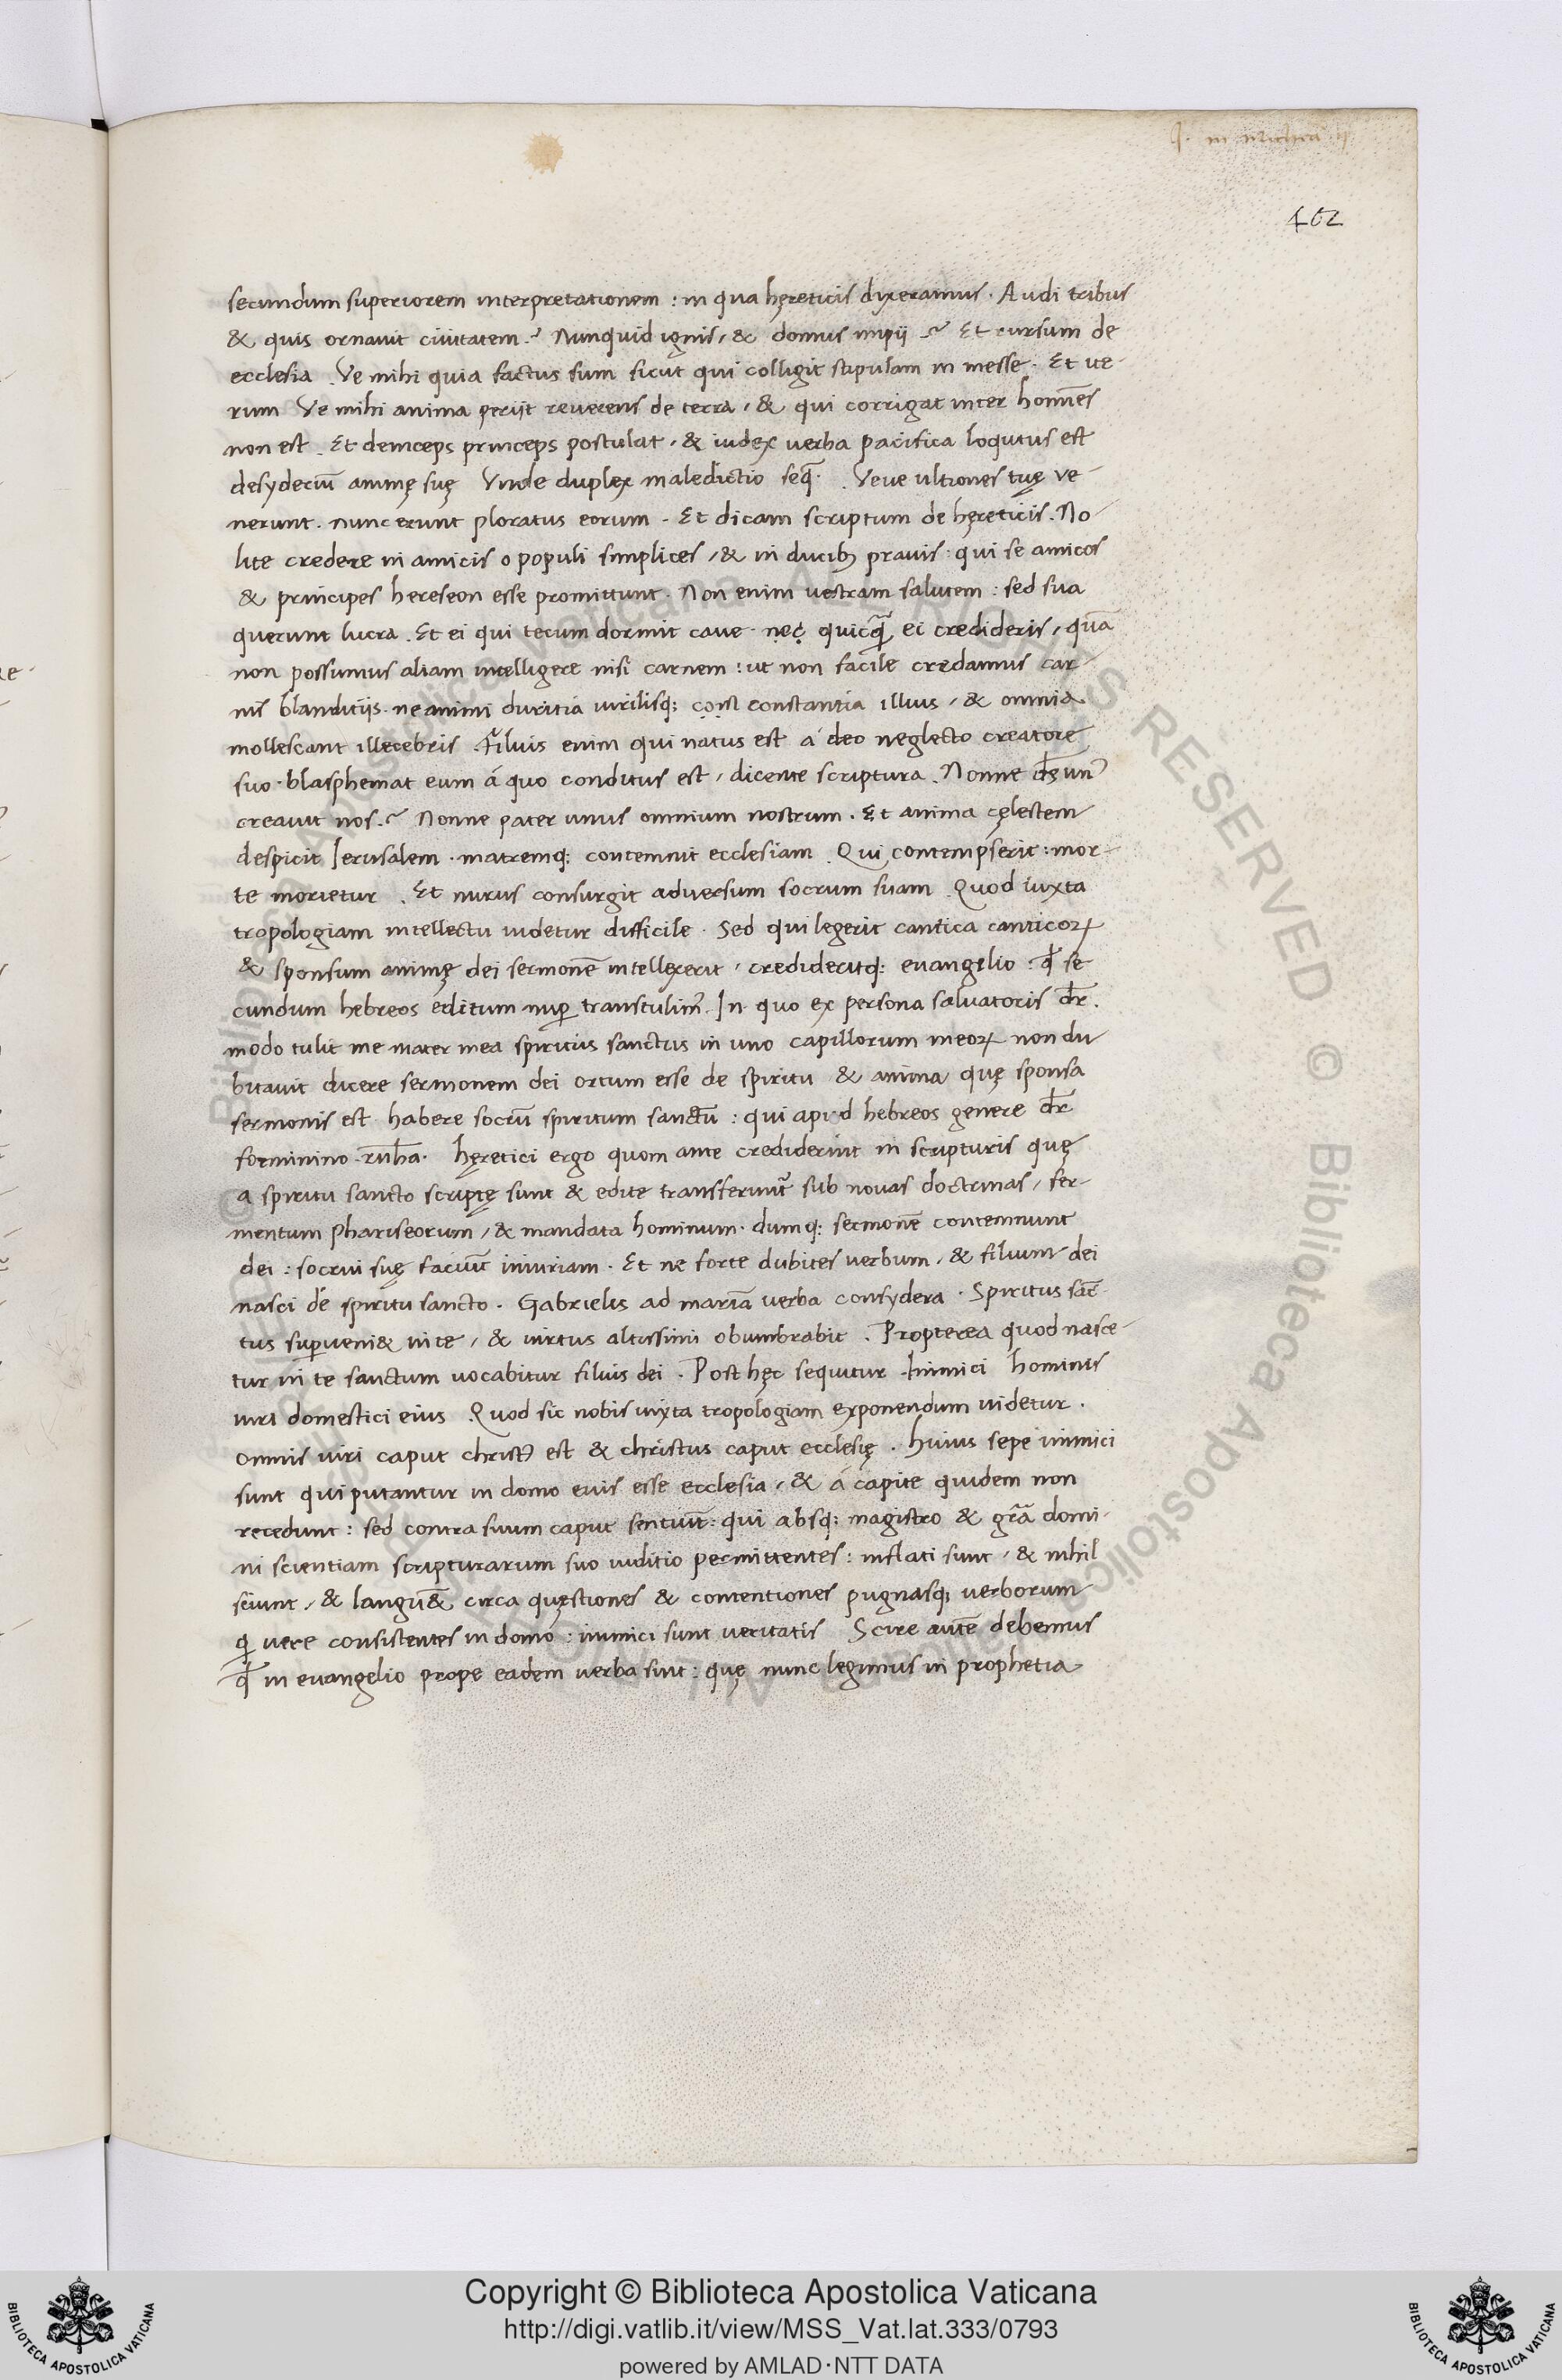 q. in Michea ii
462
secundum superiorem interpretationem : in qua hęreticis dixeramus . Audi tribus
& quis ornavit civitatem .~ Nunquid ignis , & domus impii .~ Et rursum de
ecclesia . Ve mihi quia factus sum sicut qui colligit stipulam in messe . Et ite-
rum Ve mihi anima periit reverens de terra , & qui corrigat inter homēs
non est . Et deinceps princeps postulat , & iudex verba pacifica loqutus est
desyderiū animę suę Unde duplex maledictio seq̄ . Veue ultiones tuę ve-
nerunt . nunc erunt ploratus eorum . Et dicam scriptum de hęreticis . No-
lite credere in amicis o populi simplices , & in ducibꝫ pravis : qui se amicos
& principes hereseon esse promittunt . Non enim vestram salutem : sed sua
querunt lucra . Et ei qui tecum dormit cave . neç quicq̃ ei credideris , quā
non possumus aliam intelligere nisi carnem : ut non facile credamus car-
nis blanditiis . ne animi duritia virilisq; const constantia illius , & omnia
mollescant illecebris . Filius enim qui natus est á deo neglecto creatore
suo . blasphemat eum á quo conditus est , dicente scriptura . Nonne ds̄ unꝰ
creavit nos .~ Nonne pater unus omnium nostrum . Et anima cęlestem
despicit Jerusalem . matremq; contemnit ecclesiam . Qui contempserit : mor-
te morietur . Et nurus consurgit adversum socrum suam . Quod iuxta
tropologiam intellectu videtur difficile . Sed qui legerit cantica canticoꝝ
& sponsum animę dei sermonē intellexerit , credideritq; evangelio : qđ se-
cundum hebreos editum nuꝑ transtulimꝰ . In quo ex persona salvatoris dr̄ .
modo tulit me mater mea spiritus sanctus in uno capillorum meoꝝ non du-
bitavit dicere sermonem dei ortum esse de spiritu & anima quę sponsa
sermonis est habere socrū spiritum sanctū : qui apud hebreos genere dr̄
forminino . ruha . hęretici ergo quom ante crediderint in scripturis quę
a spiritu sancto scriptę sunt & edite transferunt̃ sub novas doctrinas , fer-
mentum phariseorum , & mandata hominum . dumq; sermonē contemnunt
dei : socrui suę faciūt iniuriam . Et ne forte dubites verbum , & filium dei
nasci de spiritu sancto . Gabrielis ad mariā verba consydera . Spiritus sāc-
tus suꝑveni& in te , & virtus altissimi obumbrabit . Propterea quod nasce-
tur in te sanctum vocabitur filius dei . Post hęc sequitur . Inimici hominis
viri domestici eius . Quod sic nobis iuxta tropologiam exponendum videtur .
omnis viri caput christꝰ est & christus caput ecclesię . huius sepe inimici
sunt qui putantur in domo euis esse ecclesia , & á capite quidem non
recedunt : sed contra suum caput sentiūt : qui absq; magistro & grā domi-
ni scientiam scripturarum suo iuditio permittentes : inflati sunt , & nihil
sciunt , & langū& circa quęstiones & contentiones pugnasq; verborum
ꝗ vere consistentes in domo : inimici sunt veritatis Scire autē debemus
qđ in evangelio prope eadem verba sint : quę nunc legimus in prophetia
Copyright © Biblioteca Apostolica Vaticana
http://digi.vatlib.it/view/MSS_Vat.lat.333/0793
powered by AMLAD·NTT DATA